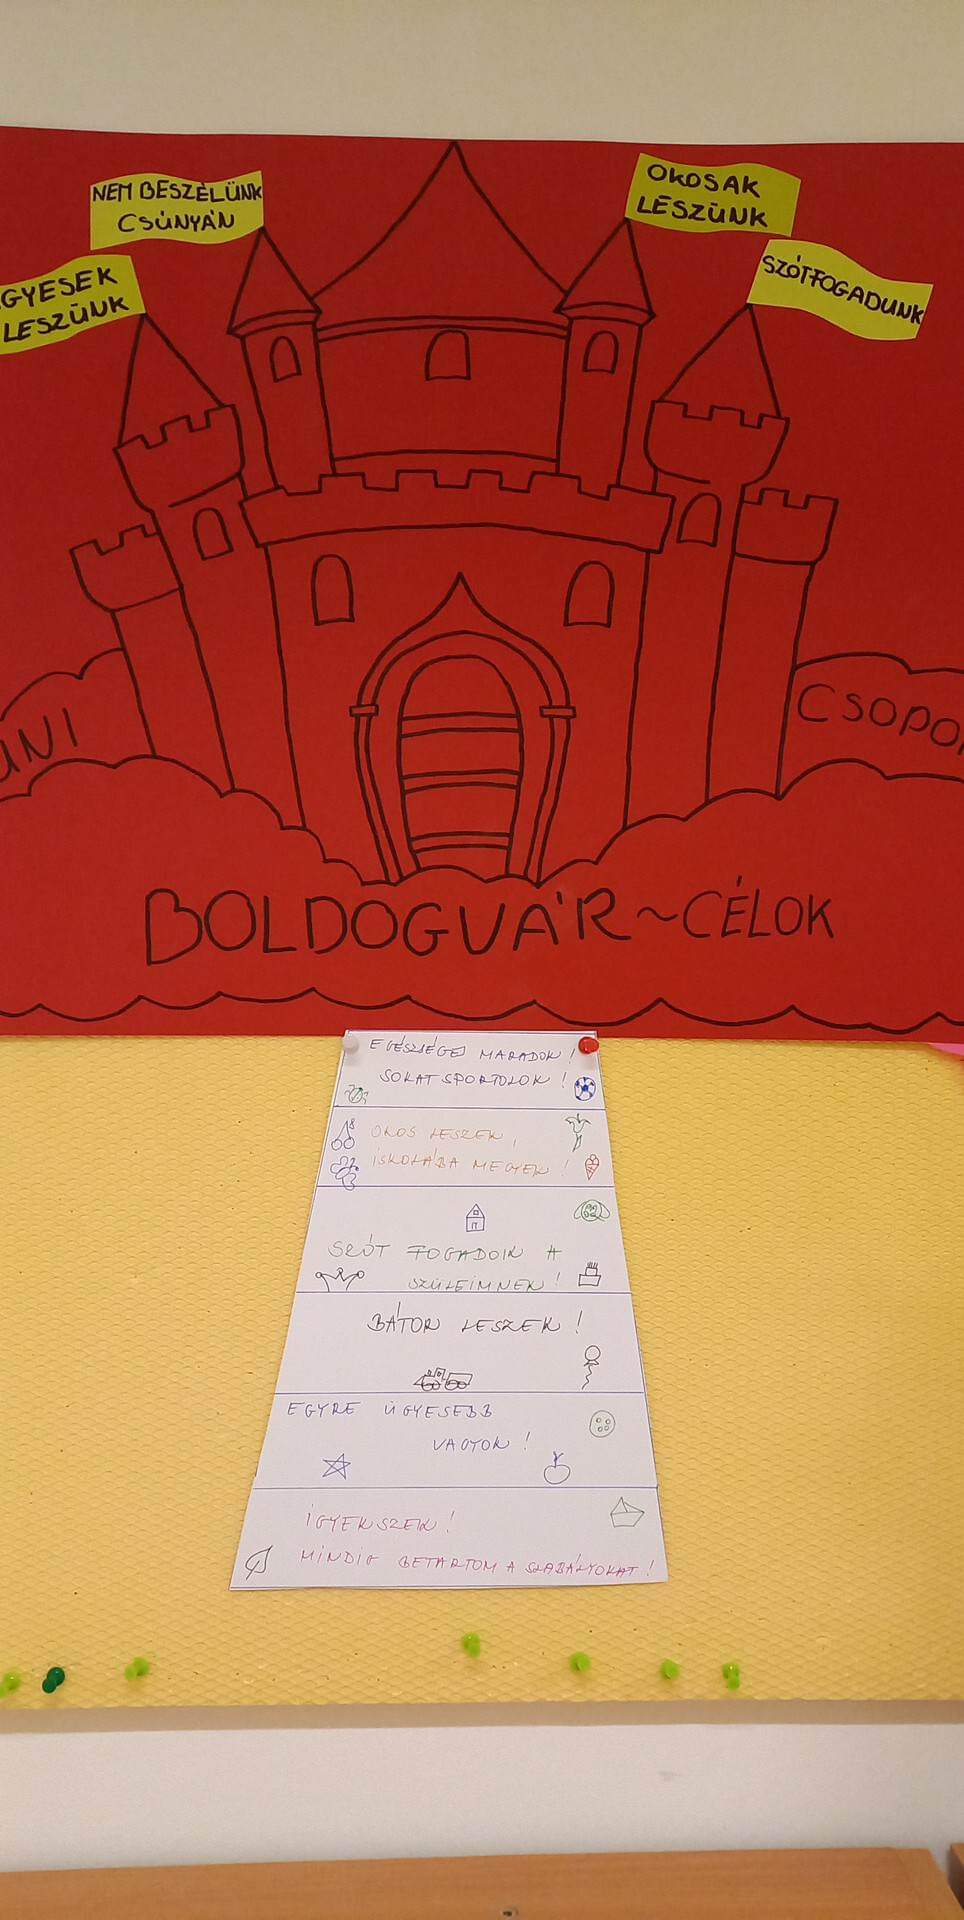 NEM BESZÉLÜNK
CSÚNYÁN
OKOSAK
LESZÜNK
GYESEK
LESZÜNK
SZÓTFOGADUNK
CSOPO
BOLDOGVÁR~CÉLOK
EGÉSZSÉGES MARADOK!
SOKAT SPORTOLOK!
OKOS LESZEK,
ISKOLÁBA MEGYEK!
SZÓT FOGADOK A
SZÜLEIMNEK!
BÁTOR LESZEK!
EGYRE ÜGYESEBB
VAGYOK!
IGYEKSZEK!
MINDIG BETARTOM A SZABÁLYOKAT!